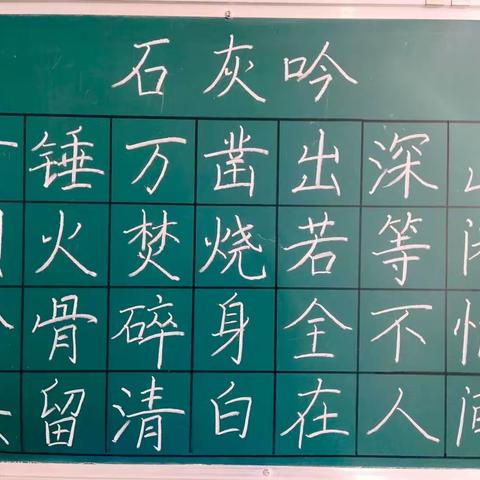 石灰吟
锤万凿出深
火焚烧若等
骨碎身全不怕
留清白在人间